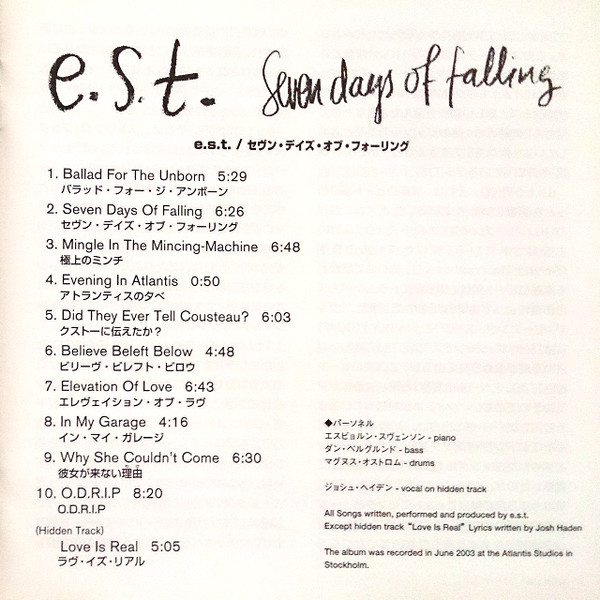 e.s.t. Seven days of falling
e.s.t. / セヴン・デイズ・オブ・フォーリング
1. Ballad For The Unborn 5:29
バラッド・フォー・ジ・アンボーン
2. Seven Days Of Falling 6:26
セヴン・デイズ・オブ・フォーリング
3. Mingle In The Mincing-Machine 6:48
極上のミンチ
4. Evening In Atlantis 0:50
アトランティスの夕べ
5. Did They Ever Tell Cousteau? 6:03
クストーに伝えたか？
6. Believe Beleft Below 4:48
ビリーヴ・ビレフト・ビロウ
7. Elevation Of Love 6:43
エレヴェイション・オブ・ラヴ
8. In My Garage 4:16
イン・マイ・ガレージ
9. Why She Couldn't Come 6:30
彼女が来ない理由
10. O.D.R.I.P 8:20
O.D.R.I.P
(Hidden Track)
Love Is Real 5:05
ラヴ・イズ・リアル
◆パーソネル
エスビョルン・スヴェンソン - piano
ダン・ベルグルンド - bass
マグヌス・オストロム - drums
ジョシュ・ヘイデン - vocal on hidden track
All Songs written, performed and produced by e.s.t.
Except hidden track “Love Is Real” Lyrics written by Josh Haden
The album was recorded in June 2003 at the Atlantis Studios in
Stockholm.